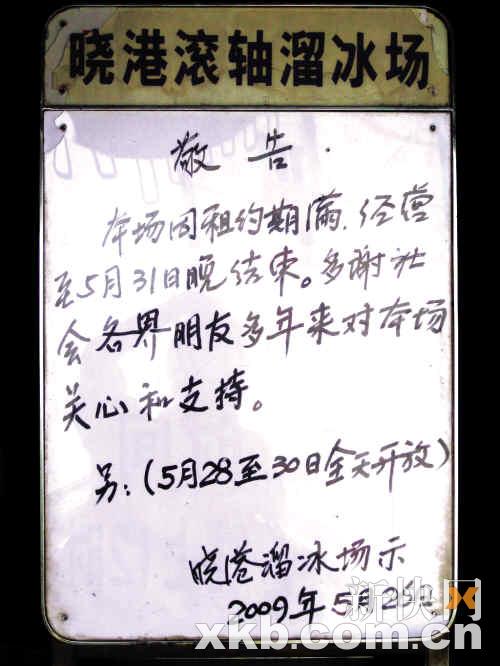 晓港滚轴溜冰场
敬告.
本场因租约期满.经营
至5月31日晚结束。多谢社
会各界朋友多年来对本场
关心和支持。
另:(5月28至30日全天开放)
晓港溜冰场示
2009年5月2
新快网
xkb.com.cn